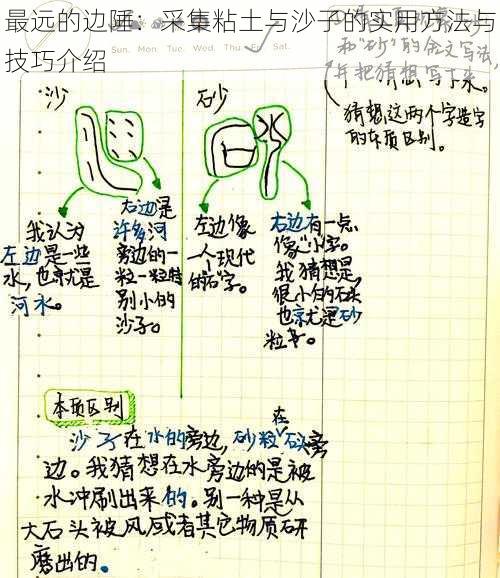 最远的边陲：采集粘土与沙子的实用方法与
技巧介绍
和“砂”的金文写法，
并把猜想写下来。
猜想这两个字造字
的本质区别。
沙
砂
我认为
左边是一些
水，也就是
河水。
右边是
许多河
旁边的一
粒一粒特
别小的
沙子。
左边像
一个现代
的“石”字。
右边有一点
像“小”字。
我猜想是，
很小的石头
也就是砂
粒等。
本质区别
沙子在水的旁边，砂粒在石头旁
边。我猜想在水旁边的是被
水冲刷出来的。另一种是从
大石头被风或者其它物质研
磨出的。